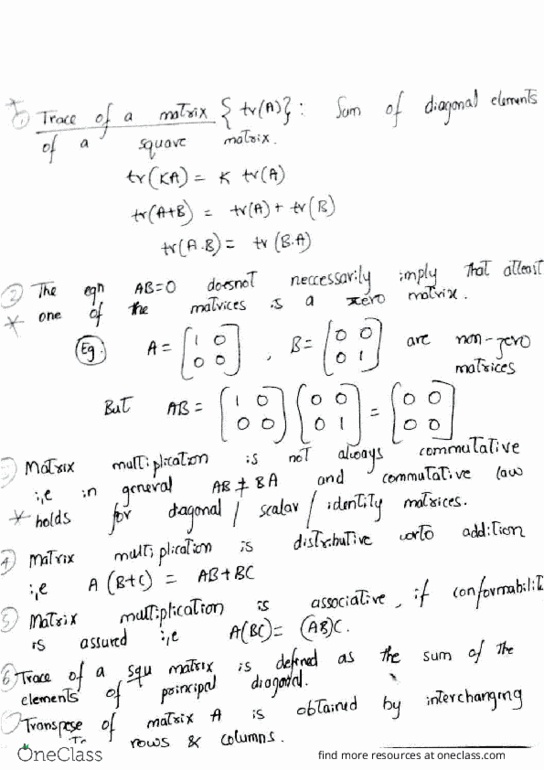 ① Trace of a matrix { tr(A)} : Sum of diagonal elements
of a square matrix.
tr(KA) = K tr(A)
tr(A+B) = tr(A) + tr(B)
tr(A.B) = tr(B.A)
② The eqn AB=0 doesnot neccessarily imply that atleast
* one of the matrices is a zero matrix.
Eg. A = [1 0 0 0] , B = [0 0 0 1] are non-zero
matrices
But AB = (1 0 0 0) (0 0 0 1) = [0 0 0 0]
③ Matrix multiplication is not always commutative
i,e in general AB ≠ BA and commutative law
* holds for diagonal / scalar / identity matrices.
④ Matrix multiplication is distributive worto addition
i,e A (B+C) = AB+BC
⑤ Matrix multiplication is associative, if conformabilit
is assured i,e A(BC) = (AB)C.
⑥ Trace of a squ matrix is defined as the sum of the
elements of principal diagonal.
Transpose of matrix A is obtained by interchanging
rows & columns.
OneClass
find more resources at oneclass.com